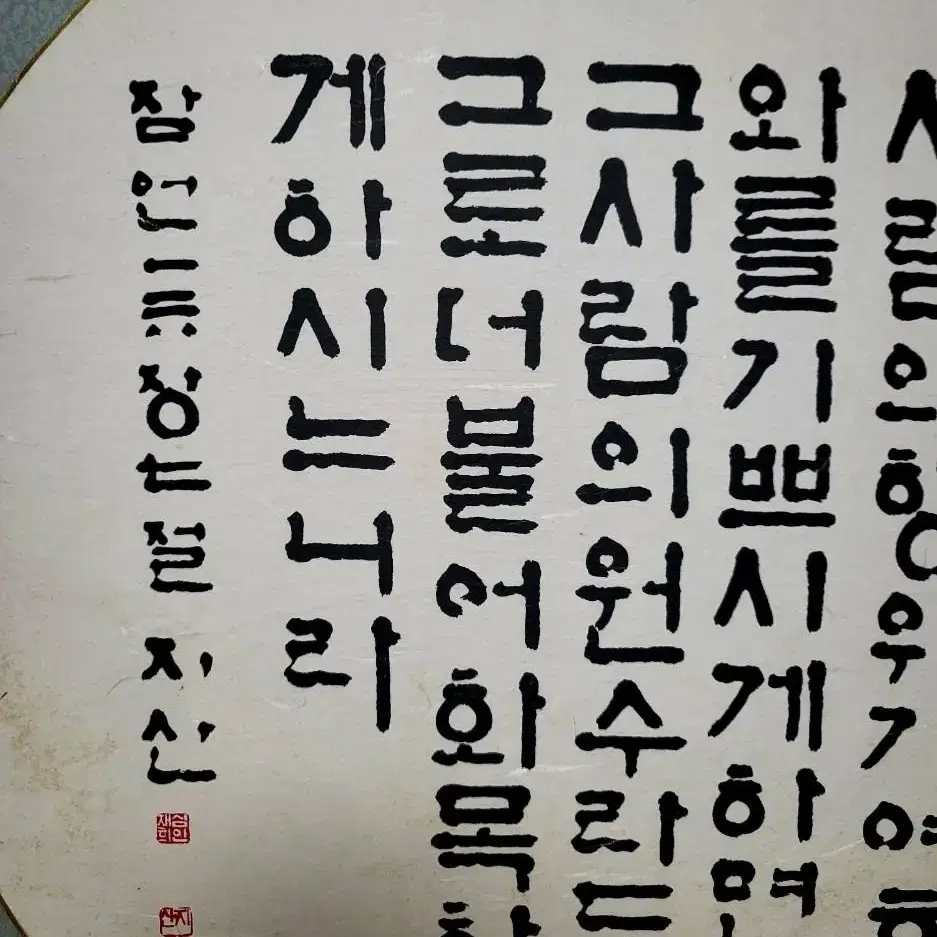 사람의행위가여호
와를기쁘시게하면
그사람의원수라도
그로더불어화목하
게하시느니라
잠언一六장七절 지산
지산